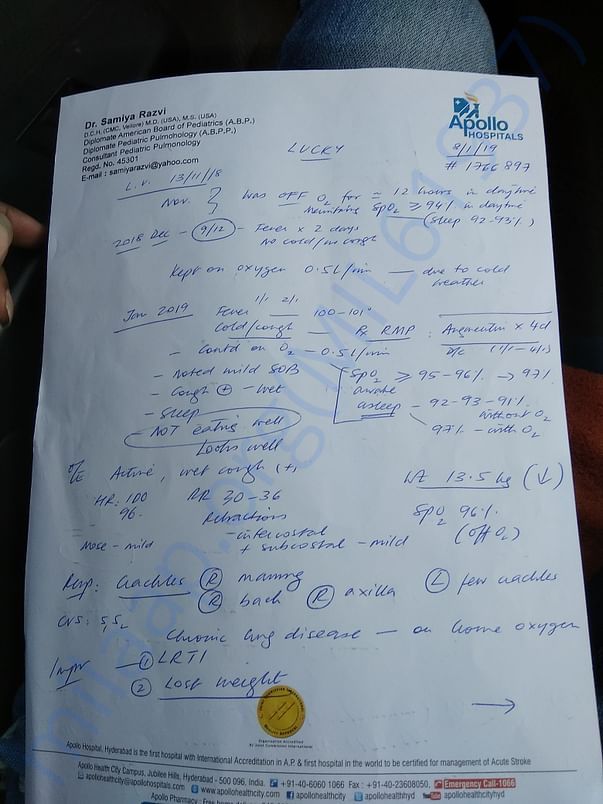 Dr. Samiya Razvi
D.C.H. (CMC, Vellore) M.D. (USA), M.S. (USA)
Diplomate American Board of Pediatrics (A.B.P.)
Diplomate Pediatric Pulmonology (A.B.P.P.)
Consultant Pediatric Pulmonology
Regd. No. 45301
E-mail : samiyarazvi@yahoo.com
Apollo
HOSPITALS
LUCKY
8/1/19
# 1766897
L.V. 13/11/18
Nov. } Was OFF O2 for ≃ 12 hours in daytime
Maintaining SpO2 ≥ 94% in daytime
(sleep 92-93%)
2018 Dec - 9/12 - Fever x 2 days
No cold/no cough
Kept on oxygen 0.5L/min — due to cold
weather
Jan 2019 Fever 1/1 2/1 100-101°
Cold/cough — Rx RMP : Augmentin x 4d
(1/1 - 4/1)
- Contd on O2 - 0.5L/min
- Noted mild SOB
- Cough + - wet
- Sleep
- NOT eating well
Looks well
SpO2 ≥ 95-96% → 97%
awake
asleep - 92-93-91%
without O2
97% - with O2
O/E Active, wet cough (+)
Wt 13.5 kg (↓)
HR: 100
96
RR 30-36
SpO2 96%
(off O2)
Retractions
- intercostal
+ subcostal - mild
Nose - mild
Resp: Crackles (R) mammary (L) few crackles
(R) back (R) axilla
CVS: S1S2
Chronic lung disease — on home oxygen
Impr — ① LRTI
② Lost weight
→
Organization Accredited
by Joint Commission International
Apollo Hospital, Hyderabad is the first hospital with International Accreditation in A.P. & first hospital in the world to be certified for management of Acute Stroke
Apollo Health City Campus, Jubilee Hills, Hyderabad - 500 096, India. +91-40-6060 1066 Fax : +91-40-23608050, Emergency Call-1066
apollohealthcity@apollohospitals.com www.apollohealthcity.com apollohealthcity apollohealthhyd apollohealthcityhyd
Apollo Pharmacy: Free home